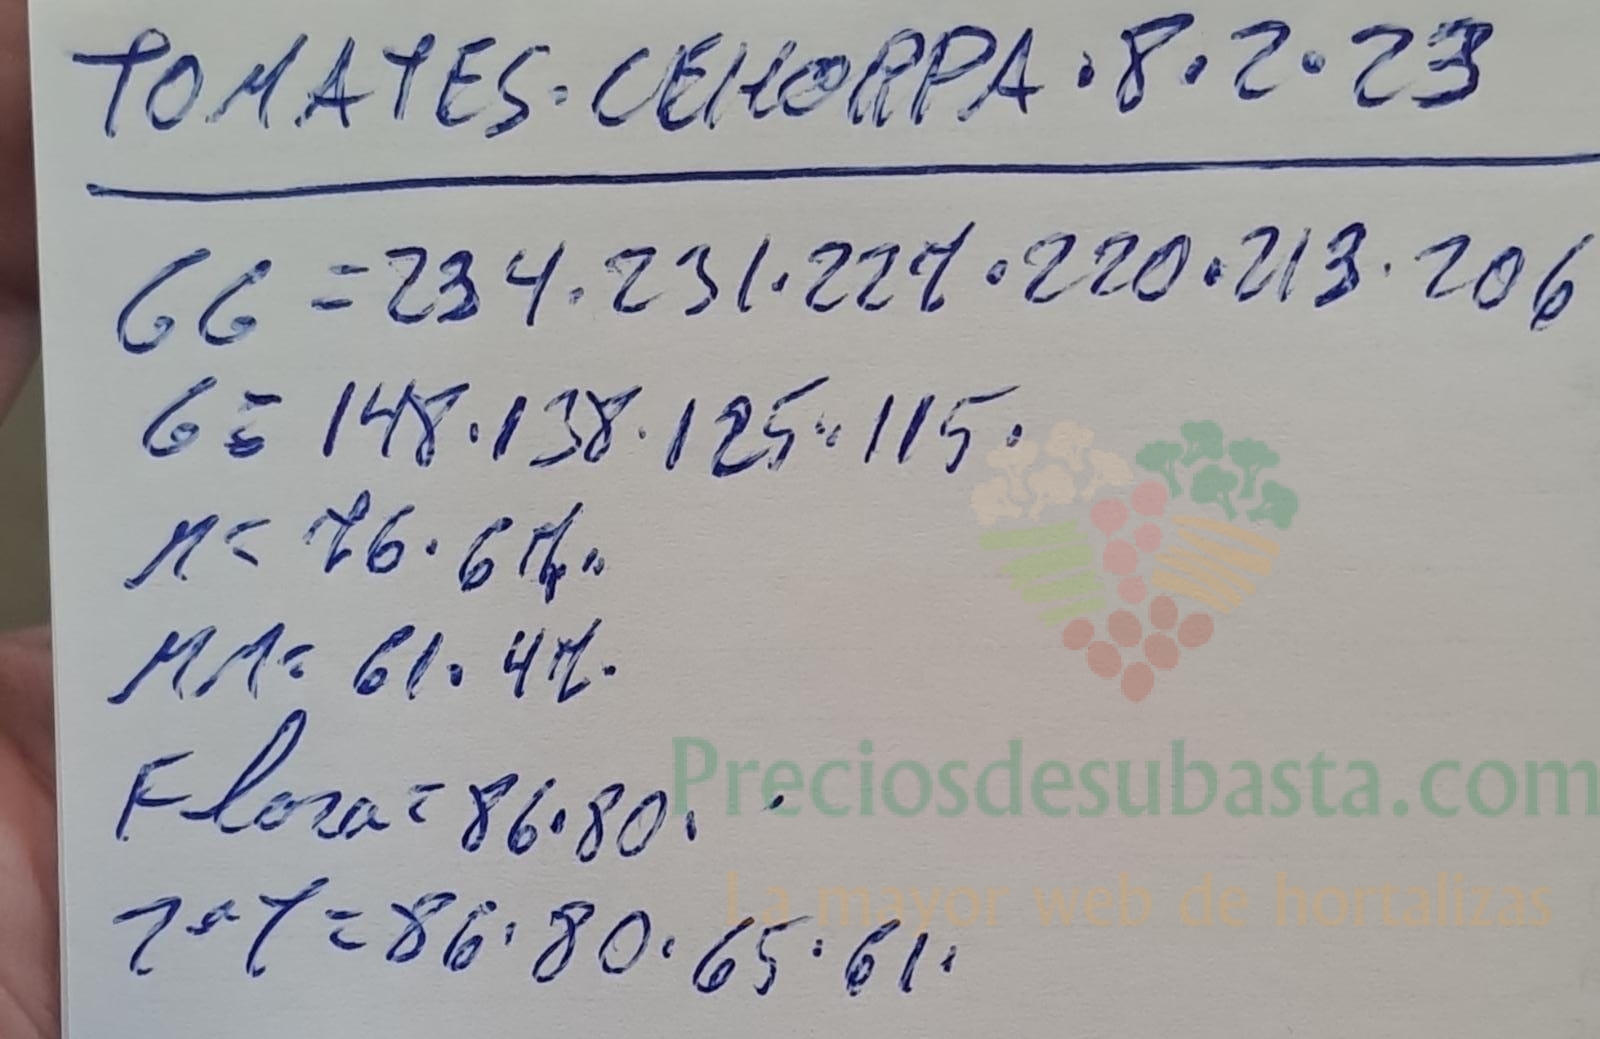 TOMATES. CEHORPA . 8. 2. 23
GG = 234. 231. 227. 220. 213. 206
G = 148. 138. 125. 115.
M = 76. 67.
MM = 61. 47.
Flora = 86. 80.
Preciosdesubasta.com
La mayor web de hortalizas
= 86. 80. 65. 61.